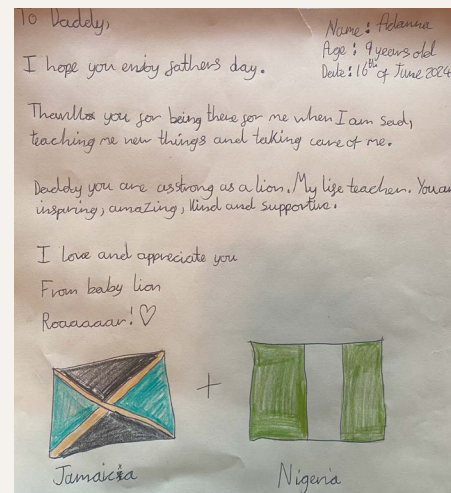 To Daddy,
Name: Adanna
Age: 9 years old
Date: 16th of June 2024
I hope you enjoy fathers day.
Thank you for being there for me when I am sad,
teaching me new things and taking care of me.
Daddy you are as strong as a lion. My life teacher. You are
inspiring, amazing, kind and supportive.
I love and appreciate you
From baby lion
Roaaaaar! ♡
+
Jamaica
Nigeria